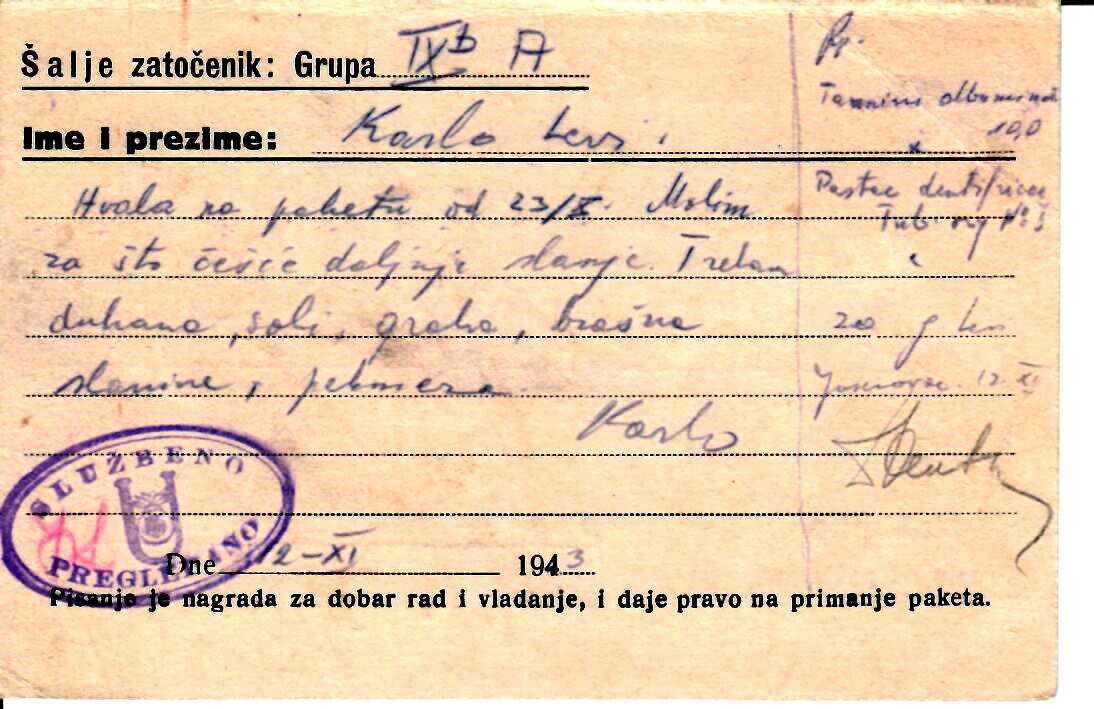 Šalje zatočenik: Grupa IXb A
Ime i prezime: Karlo Levi
Hvala na paketu od 23/X. Molim
za što češće daljnje slanje. Trebam
duhana, soli, graha, brašna
slanine, pekmeza
Karlo
Rp.
Tannini albuminat
10,0
x
Pastae dentifriciae
Tub
20 g
12 XI
SLUŽBENO
PREGLEDANO
Dne 12-XI 1943
Pisanje je nagrada za dobar rad i vladanje, i daje pravo na primanje paketa.